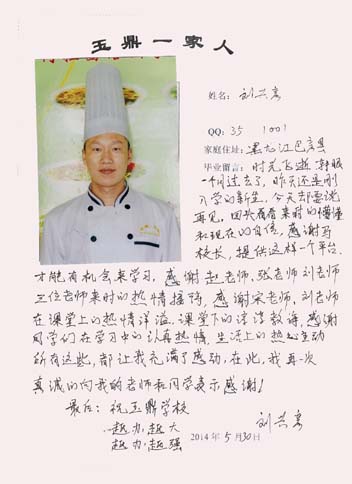 玉鼎一家人
姓名: 刘兴家
QQ: 35 1001
家庭住址: 黑龙江巴彦县
毕业留言: 时光飞逝 转眼
一个月过去了, 昨天还是刚
入学的新生, 今天却要说
再见, 回头看看来时的懵懂
和现在的自信, 感谢马
校长, 提供这样一个平台.
才能有机会来学习, 感谢赵老师, 张老师 刘老师
三位老师来时的热情接待, 感谢宋老师, 刘老师
在课堂上的热情洋溢. 课堂下的谆谆教诲, 感谢
同学们在学习中的认真热情, 生活上的热心互助
所有这些, 都让我充满了感动, 在此, 我再次
真诚的向我的老师和同学表示感谢!
最后: 祝玉鼎学校
越办, 越大
越办, 越强
刘兴家
2014年5月30日